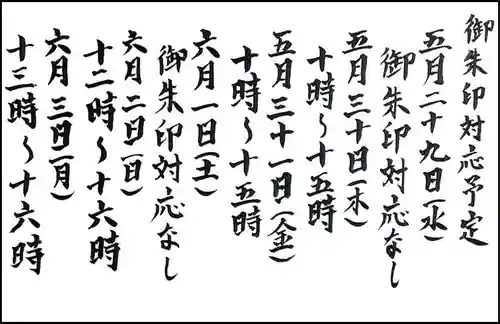 御朱印対応予定
五月二十九日(水)
御朱印対応なし
五月三十日(木)
十時~十五時
五月三十一日(金)
十時~十五時
六月一日(土)
御朱印対応なし
六月二日(日)
十二時~十六時
六月三日(月)
十三時~十六時